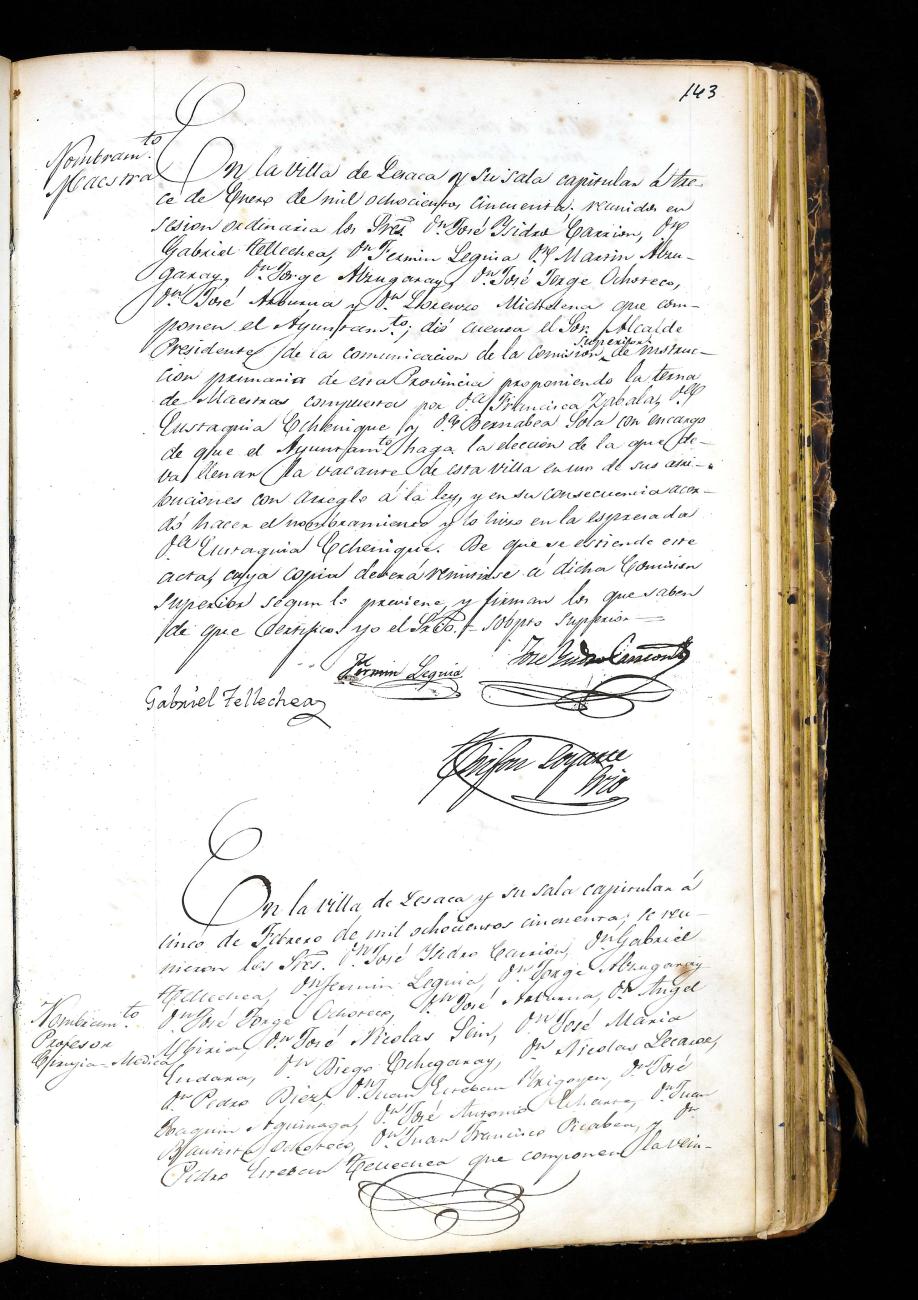 143
Nombram.to
Maestra
En la villa de Lesaca y su sala capitular á tre-
ce de Enero de mil ochocientos cincuenta: reunidos en
sesion ordinaria los Sres Dn José Ysidro Carrion, Dn
Gabriel Tellechea, Dn Fermin Leguia Dn Martin Alzu-
garay, Dn Jorge Alzugaray, Dn José Jorge Ochoteco,
Dn José Arburua y Dn Lorenzo Michelena que com-
ponen el Ayuntam.to; dió cuenta el Sor. Alcalde
Presidente de la comunicacion de la Comision superior de instruc-
cion primaria de esta Provincia proponiendo la terna
de Maestras compuesta por Da Francisca Zabala, Da
Eustaquia Echenique y Da Bernabea Sola con encargo
de que el Ayuntam.to haga la elección de la que de-
va llenar la vacante de esta villa en uso de sus atri-
buciones con arreglo á la ley, y en su consecuencia acor-
dó hacer el nombramiento y lo hizo en la espresada
Da Eustaquia Echenique. De que se estiende este
acta, cuya copia deberá remitirse á dicha Comision
superior segun lo previene, y firman los que saben
de que Certifico yo el Srio. = Sobpto superior =
Fermin Leguia
José Ysidro Carrion
Gabriel Tellechea
Srio
En la villa de Lesaca y su sala capitular á
cinco de Febrero de mil ochocientos cincuenta; se reu-
nieron los Sres. Dn José Ysidro Carrion, Dn Gabriel
Tellechea, Dn Fermin Leguia, Dn Jorge Alzugaray
Nombram.to
Profesor
Cirugia-Medica
Dn José Jorge Ochoteco, Dn José Arburua, Dn Angel
Dn José Nicolas Dn José Maria
Endara, Dn Diego Echegaray, Dn Nicolas Lecaroz,
Dn Pedro Diez, Dn Juan Esteban Yrigoyen, Dn José
Joaquin Aguinaga, Dn José Antonio Dn Juan
Bautista Ochoteco, Dn Juan Francisco Picabea, y Dn
Pedro Esteban Tellechea que componen la vein-